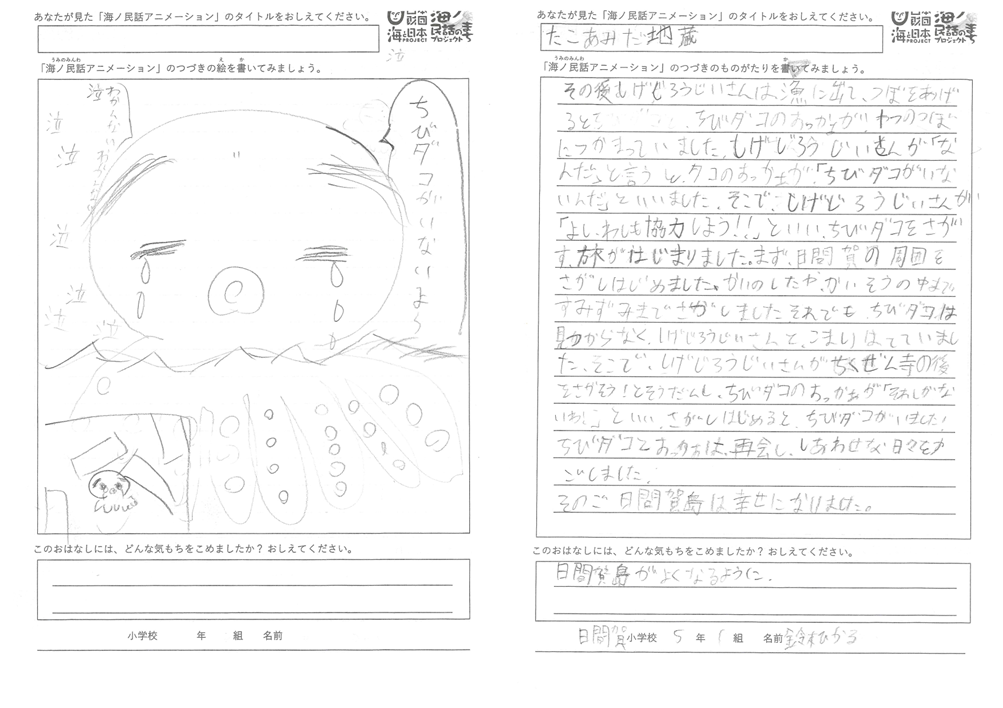 あなたが見た「海ノ民話アニメーション」のタイトルをおしえてください。
日本財団
海と日本
PROJECT
海ノ民話のまち
プロジェクト
泣
うみのみんわ え か
「海ノ民話アニメーション」のつづきの絵を書いてみましょう。
ちびダコがいないよ〜
わかんない
泣
泣
泣
泣
泣
泣
泣
このおはなしには、どんな気もちをこめましたか？おしえてください。
小学校 年 組 名前
あなたが見た「海ノ民話アニメーション」のタイトルをおしえてください。
日本財団
海と日本
PROJECT
海ノ民話のまち
プロジェクト
たこあみだ地蔵
うみのみんわ か
「海ノ民話アニメーション」のつづきのものがたりを書いてみましょう。
その後しげじろうじいさんは、漁に出て、つぼをあげ
ると ちびダコのおっかあが、 つのつぼ
につかまっていました。しげじろうじいさんが「な
んだ」と言うと、タコのおっかあが、「ちびダコがいな
いんだ」といいました。そこで、しげじろうじいさんが
「よし、わしも協力しよう!!」といい、ちびダコをさが
す、旅がはじまりました。まず、日間賀の周囲を
さがしはじめました。かいのしたや、かいそうの中まで
すみずみまでさがしました それでも、ちびダコは
見つからなく、しげじろうじいさんと、こまりはてていまし
た、そこで、しげじろうじいさんがちくぜん寺の後
をさがそう!とそうだんし、ちびダコのおっかあが「それしかな
い 」といい、さがしはじめると、ちびダコがいました!
ちびダコとおっかあは、再会し、しあわせな日々をか
ごしました。
そのご日間賀島は幸せになりました。
このおはなしには、どんな気もちをこめましたか？おしえてください。
日間賀島がよくなるように。
日間賀小学校 5 年 1 組 名前 鈴木ひかる